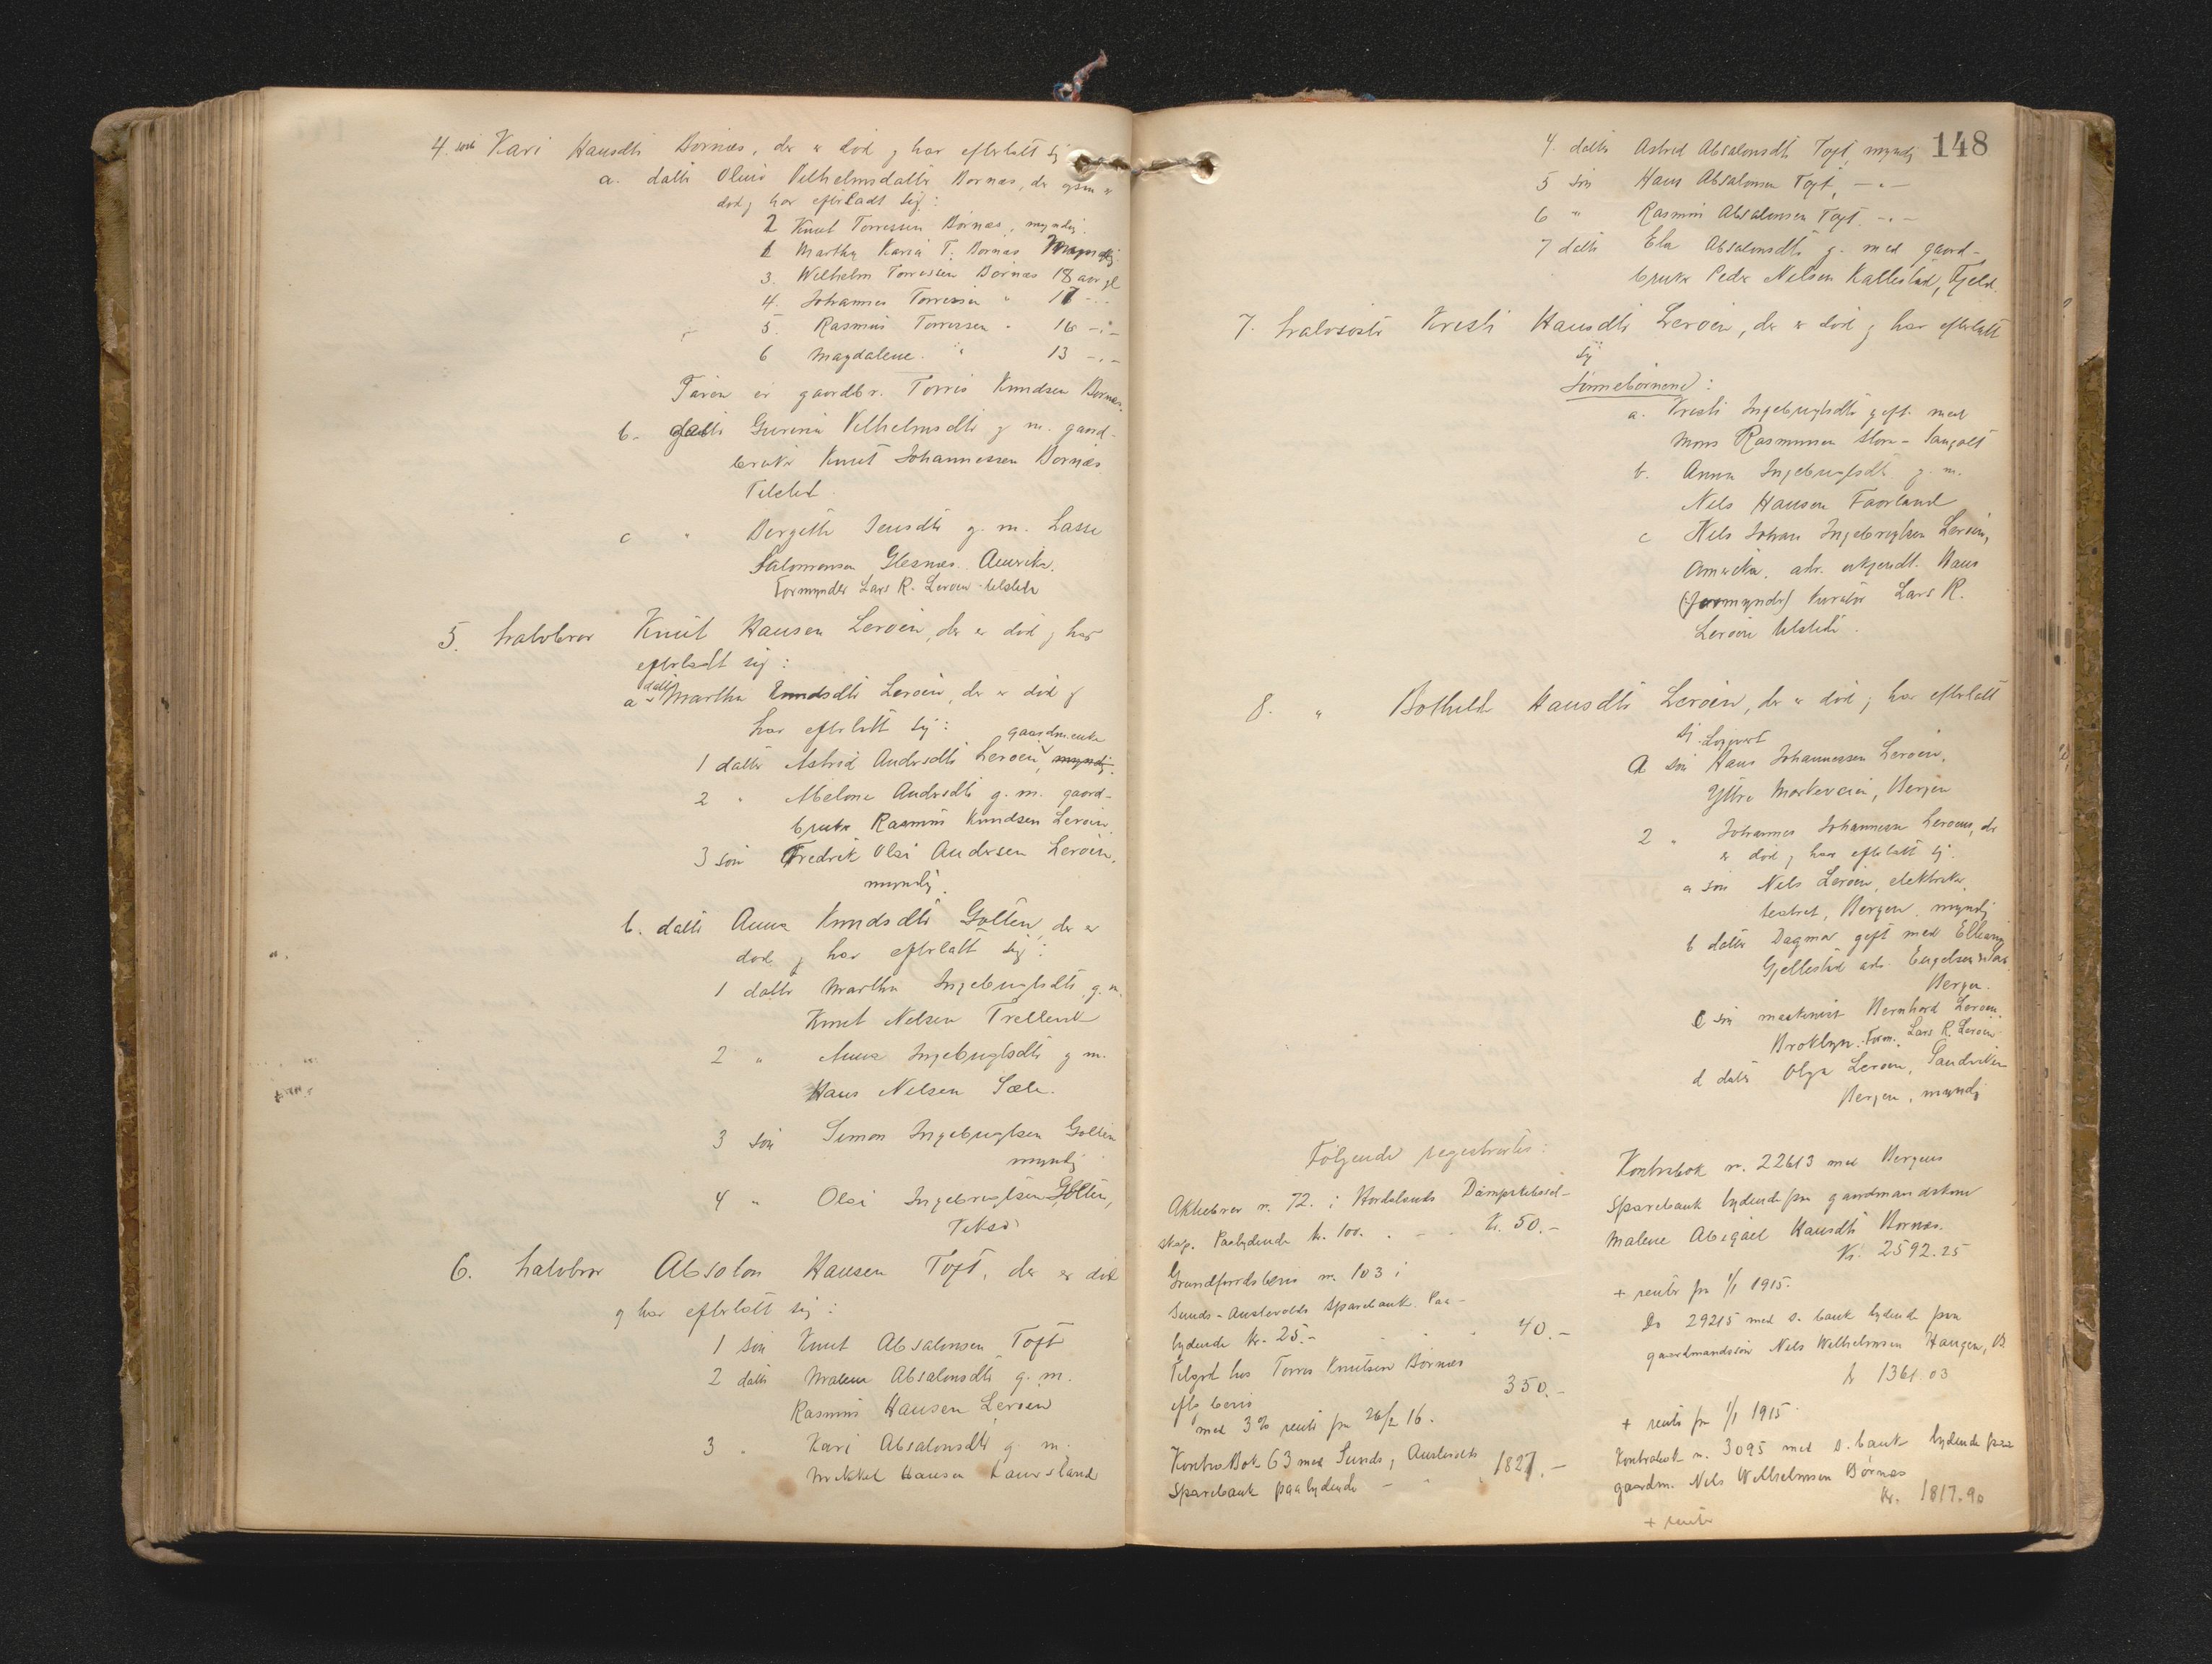 4. søst Kari Hansdtr Bornæs, der er død og har efterlatt sig
a. datter Oline Vilhelmsdatter Bornæs, der ogsaa er
død og har efterladt sig:
2 Knut Torressen Bornæs, myndig.
1 Martha Karia T. Bornæs Myndig
3. Wilhelm Torressen Bornæs 18 aar gl
4. Johannes Torressen " 17 -"-
5. Rasmus Torressen " 16 -"-
6 Magdalene " 13 -"-
Faren er gaardbr. Torris Knudsen Bornæs.
b. datter Gurine Vilhelmsdtr g m. gaard-
bruker Knut Johannessen Bornæs
Tilsted.
c " Bergitte Jensdtr g. m. Lasse
Salomonsen Glesnæs. Amerika.
Formynder Lars R. Lerøen tilstede
5. halvbror Knut Hansen Lerøen, der er død og har
efterladt sig:
a datter Martha Knudsdtr Lerøen, der er død og
har efterlatt sig:
1 datter Astrid Andersdtr Lerøen, gaardm.enke myndig.
2 " Abelone Andersdtr g. m. gaard-
bruker Rasmus Knudsen Lerøen.
3 søn Fredrik Olai Andersen Lerøen,
myndig.
b. datter Anna Knudsdtr Golten, der er
død og har efterlatt sig:
1 datter Martha Ingebrigtsdtr g. m.
Knut Nelsen Trellevik
2 " Anna Ingebrigtsdtr g m.
Hans Nelsen Sæle.
3 søn Simon Ingebrigtsen Golten
myndig
4 " Olai Ingebrigtsen Golten,
Teksø
6. halvbror Absolon Hansen Toft, der er død
og har efterlatt sig:
1 søn Knut Absalonsen Toft
2 datter Malene Absalonsdtr g. m.
Rasmus Hansen Lerøen
3 " Kari Absalonsdtr g. m.
Mikkel Hansen Lauvsland
148
4. datter Astrid Absalonsdtr Toft, myndig
5 søn Hans Absalonsen Toft, -"-
6 " Rasmus Absalonsen Toft -"-
7 datter Ela Absalonsdtr g. med gaard-
bruker Peder Nelsen Kallestad, Fjeld.
7. halvsøster Kristi Hansdtr Lerøen, der er død og har efterlatt
sig
Sønnebørnene:
a. Kristi Ingebrigtsdtr gift med
Mons Rasmussen Store-Sangolt
b. Anna Ingebrigtsdtr g. m.
Nils Hansen Faarland
c Nils Johan Ingebrigtsen Lerøen,
Amerika, adr. ukjendt. Hans
(formynder) kurator Lars R.
Lerøen tilstede.
8. " Bothilde Hansdtr Lerøen, der er død og har efterlatt
sig
a søn Hans Johannessen Lerøen,
Ytre Markeveien, Bergen
2 " Johannes Johannessen Lerøen, der
er død og har efterlatt sig.
a søn Nils Lerøen, elektriker,
teatret, Bergen. myndig
b datter Dagmar gift med
Gjellestad adr. Engelsen
Bergen.
c søn maskinist Bernhard Lerøen
Broklyn. Form. Lars R. Lerøen
d datter Olga Lerøen, Sandviken
Bergen, myndig
Følgende registrertes:
Aktiebrev nr. 72. i Hordalands Dampskibssel-
skap. Paalydende kr. 100. . - - Kr. 50.-
Grundfondsbevis nr. 103 i
Sunds-Austevolds Sparebank. Paa-
lydende kr. 25.- - - - 40.-
Tilgod hos Torres Knutsen Bornæs
efter bevis 350.-
med 3% rente fra 26/2 16.
Kontrabok 63 med Sunds og Austevolds
Sparebank paalydende - " " 1827.-
Kontrabok nr. 22613 med Bergens
Sparebank lydende paa gaardmandskone
Malene Abigael Hansdtr Bornæs.
Kr. 2592.25
+ renter fra 1/1 1915.
Do 29215 med s. bank lydende paa
gaardmandssøn Nils Wilhelmsen Haugen, B
kr 1361.03
+ renter fra 1/1 1915.
Kontrabok nr. 3095 med s. bank lydende paa
gaardm. Nils Wilhelmsen Børnæs
Kr. 1817.90
+ renter